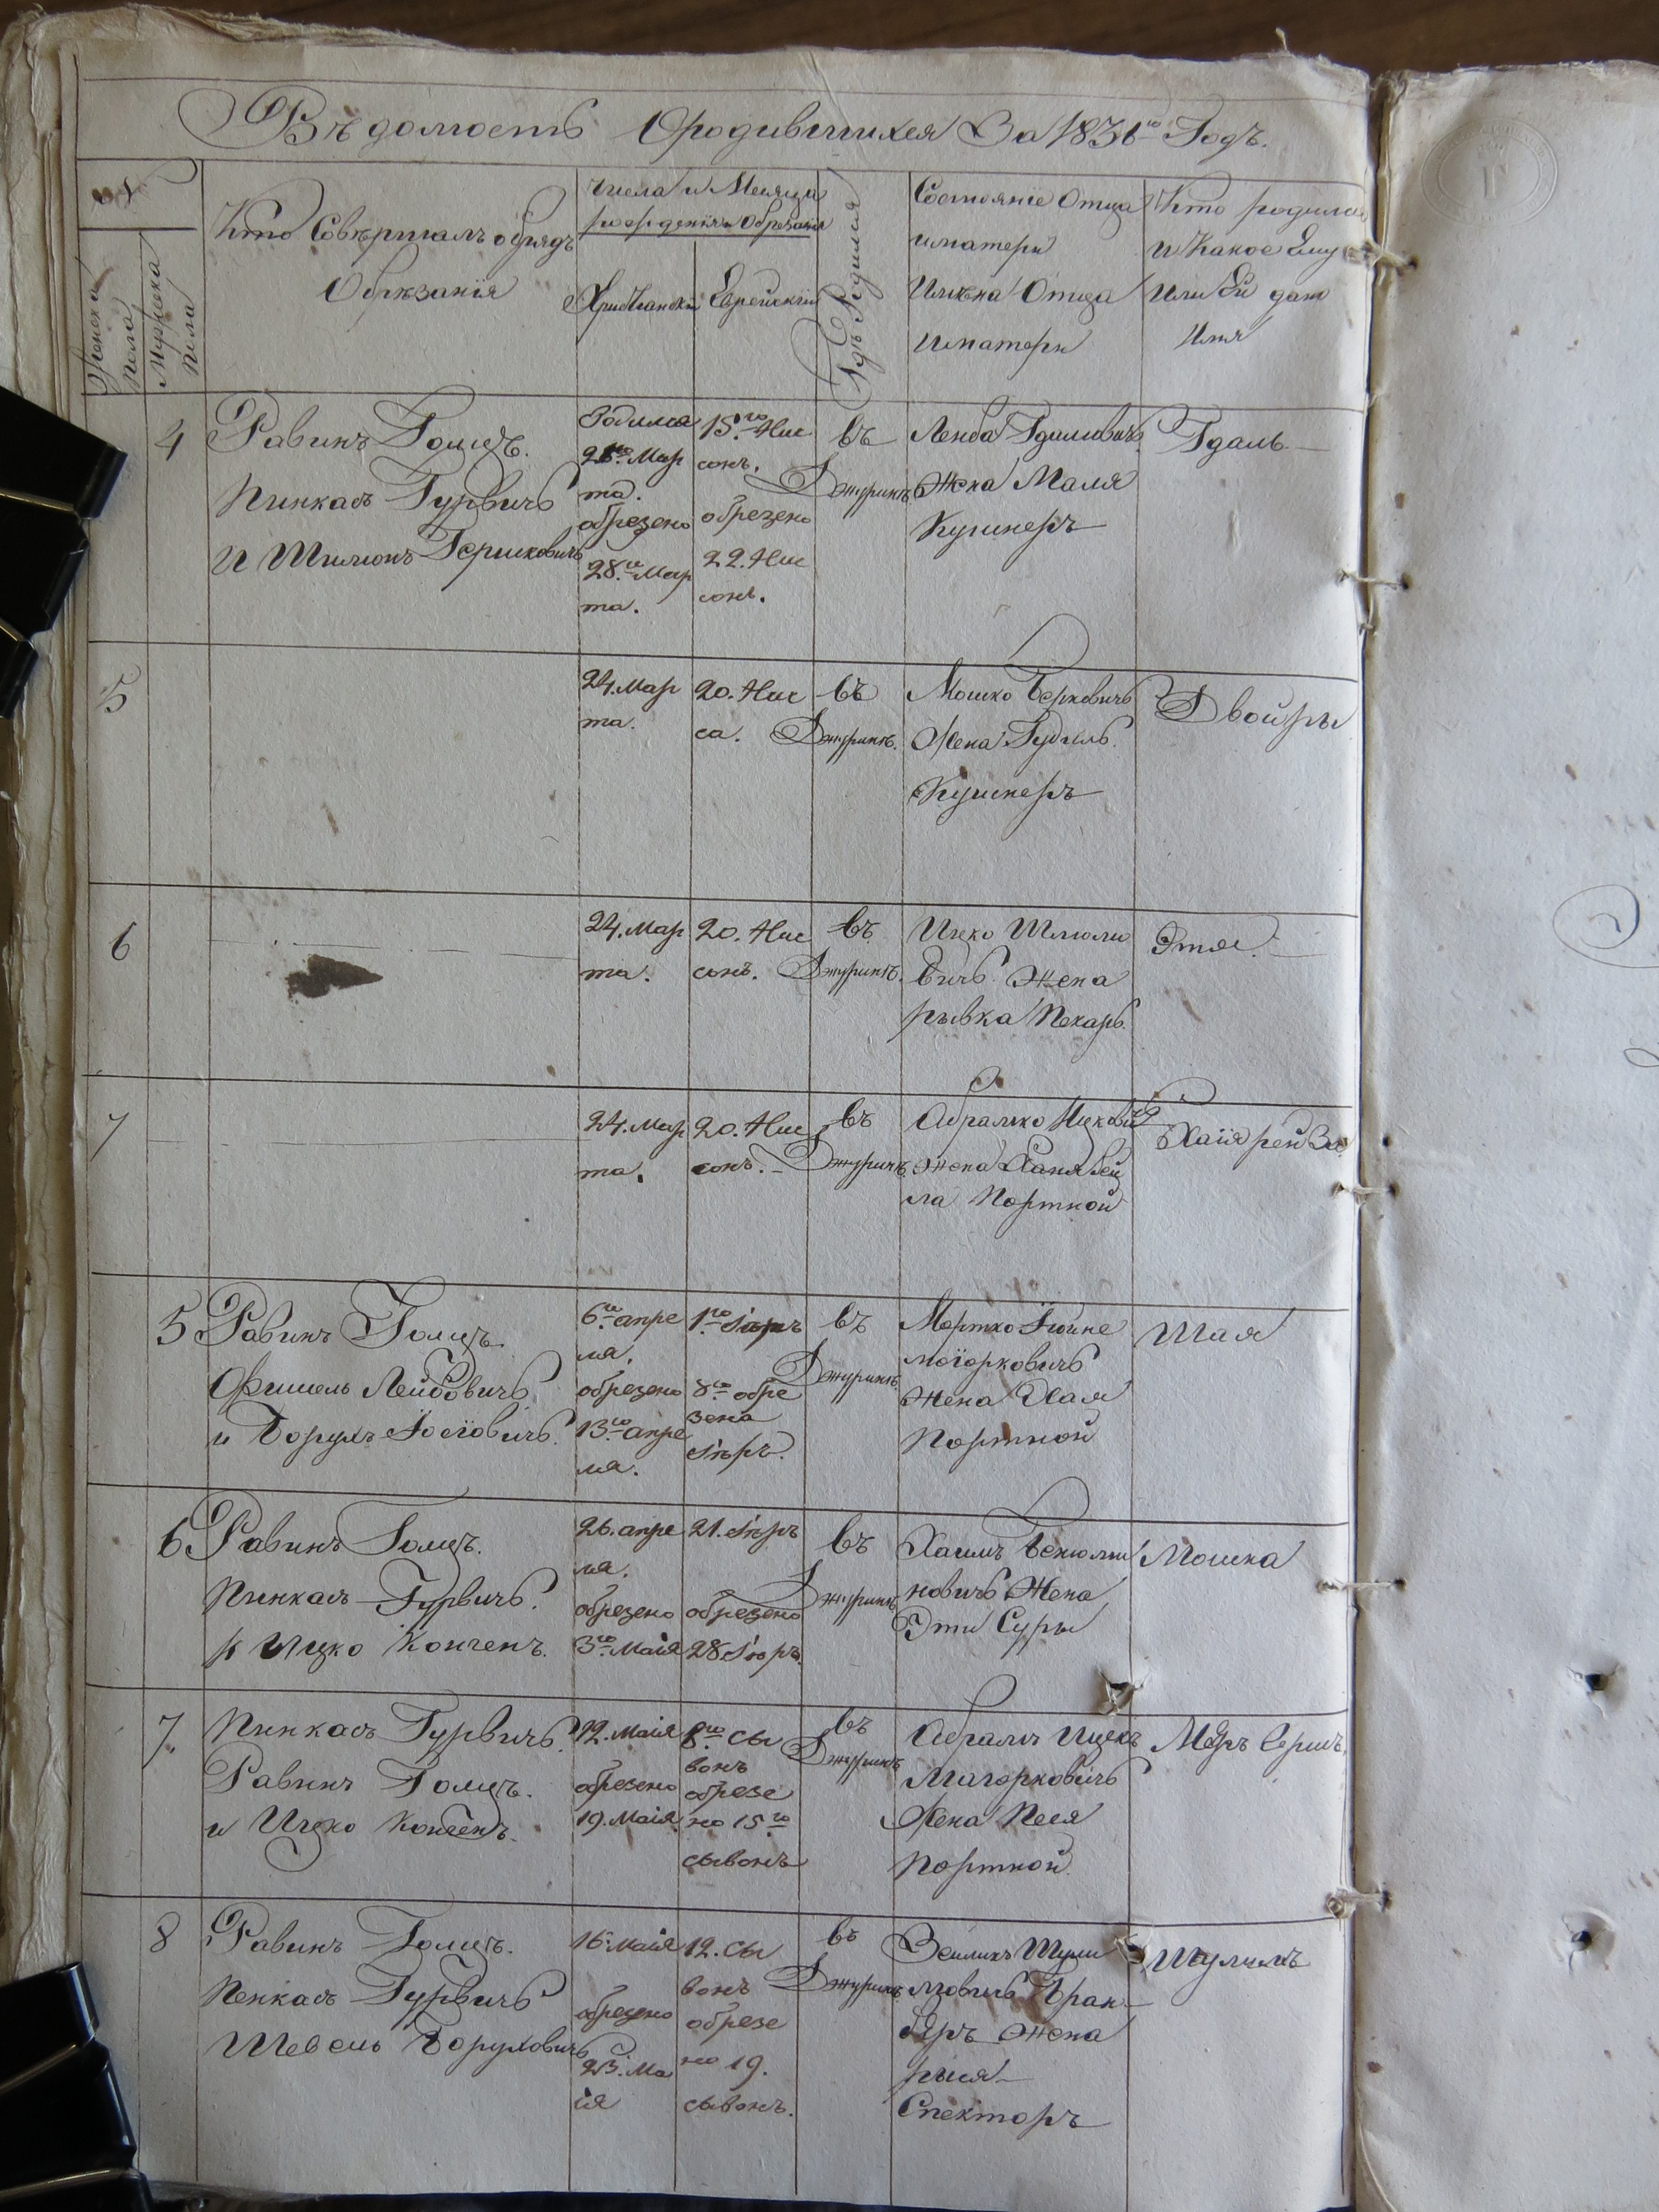 Вѣдомость Ородившихся За 1836го Годъ.
№
Женска пола
Мужеска пола
Кто Совершалъ обрядъ
Обрѣзанія
Числа и Месяца
рожденія и Обрезанія
Христіански
Еврейскій
Гдѣ Родился
Состояніе Отца
и матери
Имена Отца
и матери
Кто родился
и Какое Ему
Или Ей дано
Имя
4
Равинъ Гомцъ.
Пинкасъ Гурвичь
И Шимонъ Гершковичь
Марта.
обрезено
28.го Мар
та.
15.го Нис
сонъ.
обрезено
22. Нис
сонъ.
въ
Джуринѣ
Лейба Гдилиовичь
Жена Маля
Кушнеръ
Гдаль
5
24. Мар
та.
20. Нис
са.
въ
Джуринѣ.
Мошко Берковичь
Жена Гудиль
Кушнеръ
Двойры
6
24. Мар
та.
20. Нис
сонъ.
въ
Джуринѣ.
Ицко Шлиоми
вичь Жена
рывка Пекарь
Этля.
7
24. Мар
та.
20. Нис
сонъ.
въ
Джуринѣ
Абрамко Ицкович
Жена Ханя Бей
ла Портной
Хаія рейзя
5
Равинъ Гомцъ.
Фишель Лейбовичь
и Борухъ Іосіовичь.
6го апре
ля.
обрезено
13.го апре
ля.
1го Іѣръ
8.го обре
зена
Іѣръ.
въ
Джуринѣ.
Мортко
Жена Хая
Портной
Шая
6
Равинъ Гомцъ.
Пинкасъ Гурвичь.
и Ицко Конгенъ.
26. апре
ля.
обрезено
3го Маія
21. Іѣръ
обрезено
28. Іѣръ.
въ
Джуринѣ
Хаимъ Бениоми
новичь Жена
Эти Суры
Мошка
7
Пинкасъ Гурвичь.
Равинъ Гомцъ.
и Ицко Конгенъ.
12. Маія
обрезено
19. Маія.
8го Сы
вонъ
обрезе
но 15го
сывонъ
въ
Джуринѣ
Абрамъ Ицекъ
Жена Песя
Портной
Меръ Гершъ.
8
Равинъ Гомцъ.
Пенкасъ Гурвичь
Шевель Боруховичь
16. Маія
обрезено
23. Ма
ія
12. Сы
вонъ
обрезе
но 19.
сывонъ.
въ
Джуринѣ.
Зейликъ Шули
мовичь Гран
беръ Жена
рыся
Спекторъ
Шулимъ